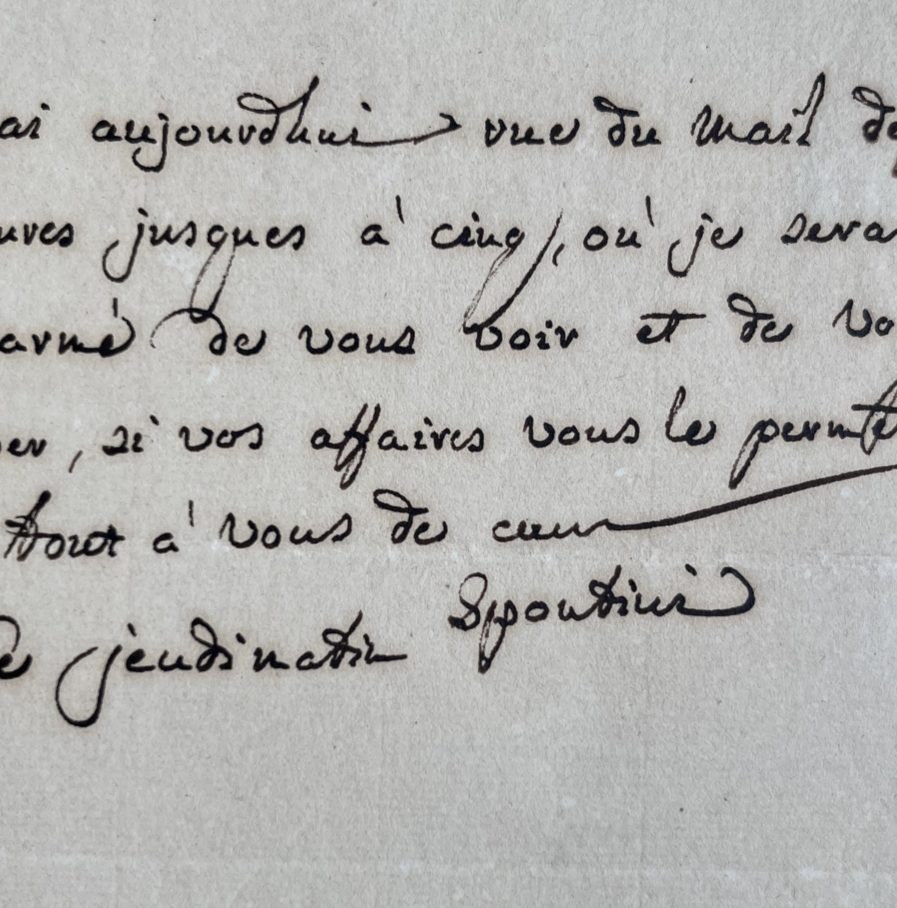 ai aujourdhui rue du Mail de
ures jusques à cinq, où je sera
armé de vous voir et de vo
er, si vos affaires vous le permet
tout à vous de cœur
Spontini
e jeudi matin